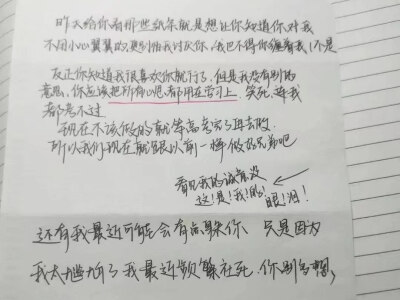 昨天给你看那些纸条就是想让你知道你对我
不用小心翼翼的,更别怕我讨厌你,我巴不得你缠着我(不是
反正你知道我很喜欢你就行了,但是我没有别的
意思,你应该把所有心思都用在学习上,笑死,连我
都考不过
现在不该做的就等高考完了再去做
所以我们现在就跟以前一样做好兄弟吧
看见我的诚意没
这!是!我!的!
眼!泪!
还有我最近可能会有点躲你 只是因为
我太尴尬了我最近频繁社死,你别多想,